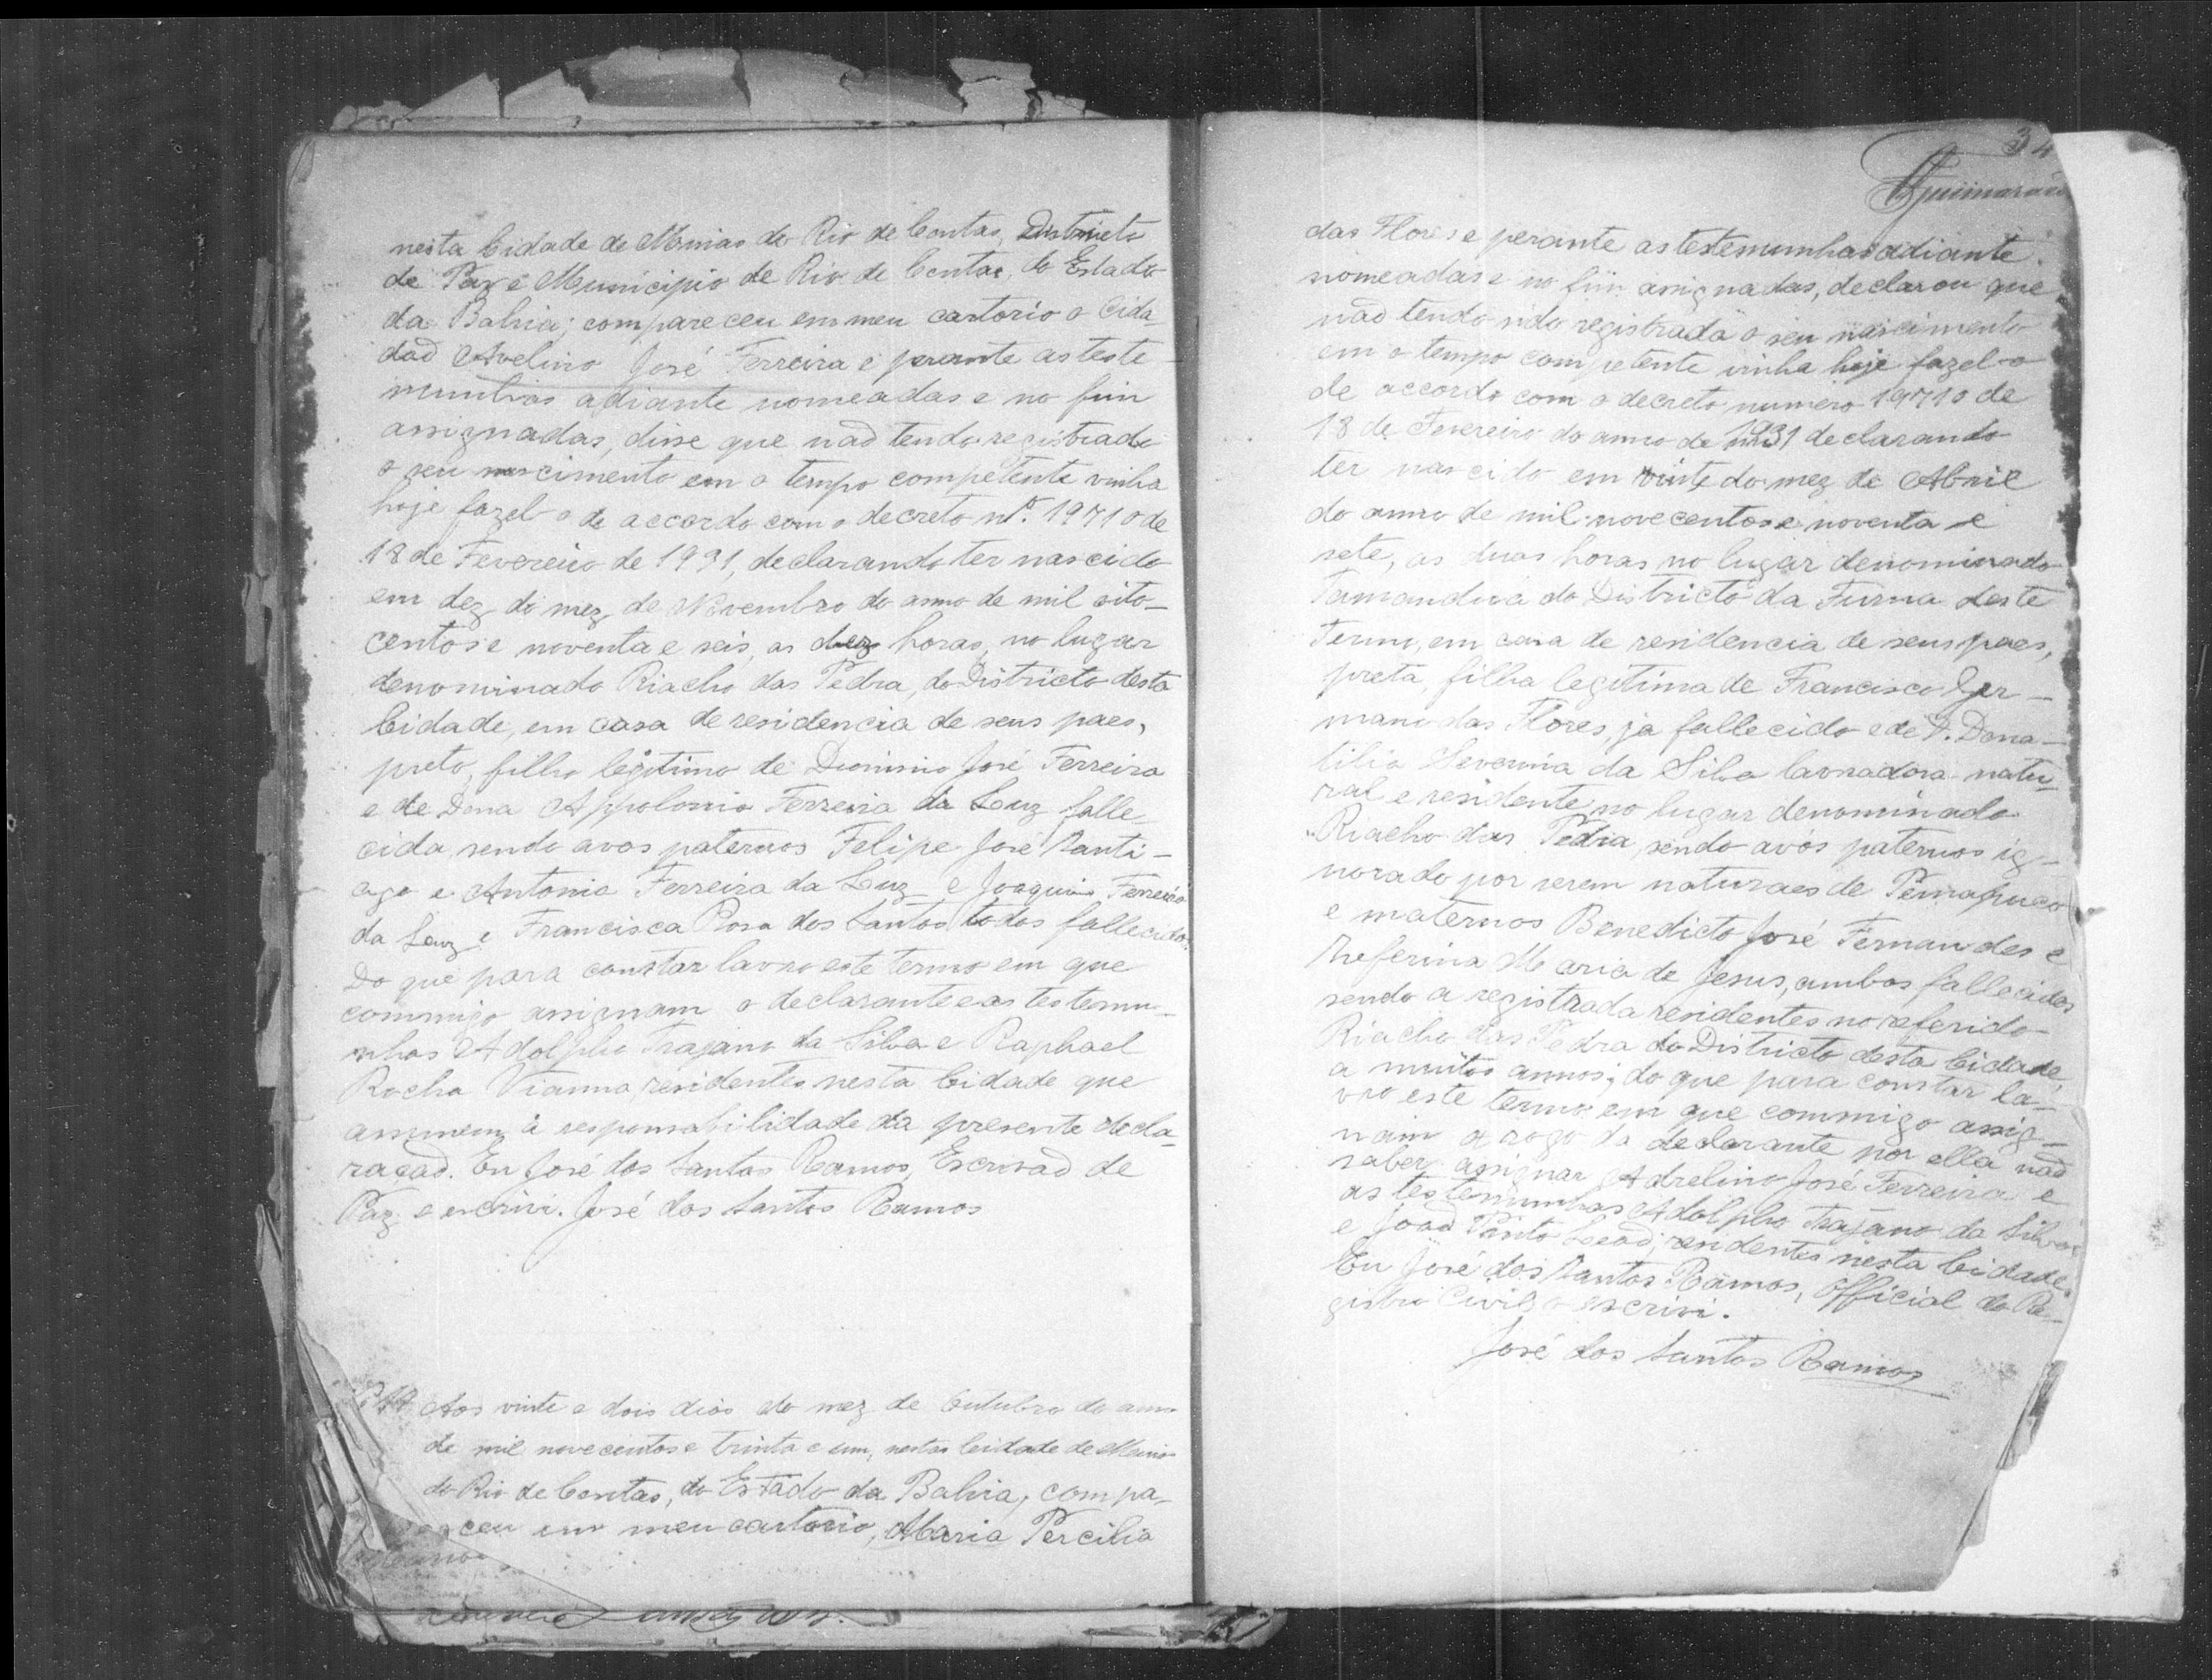 nesta Cidade de Minas do Rio de Contas, Districto
de Paz e Municipio de Rio de Contas, do Estado
da Bahia; compareceu em meu cartorio o Cida-
dão Avelino José Ferreira e perante as teste
munhas adiante nomeadas e no fim
assignadas, disse que não tendo registrado
o seu nascimento em o tempo competente vinha
hoje fazel-o de accordo com o decreto nº. 19710 de
18 de Fevereiro de 1931, declarando ter nascido
em dez do mez de Novembro do anno de mil oito-
centos e noventa e seis, as dez horas, no lugar
denominado Riacho das Pedra, do Districto desta
Cidade, em casa de residencia de seus paes,
preto, filho legitimo de Dionisio José Ferreira
e de Dona Appolonia Ferreira da Luz falle
cida, sendo avos paternos Felipe José Santi-
ago e Antonia Ferreira da Luz e Joaquim Ferreira
da Luz e Francisca Rosa dos Santos todos fallecidos.
Do que para constar lavro este termo em que
commigo assignam o declarante e as testemu-
nhas Adolpho Trajano da Silva e Raphael
Rocha Vianna, residentes nesta Cidade que
assumem à responsabilidade da presente decla-
ração. Eu José dos Santos Ramos, Escrivão de
Paz, o escrivi. José dos Santos Ramos
Aos vinte e dois dias do mez de Outubro do anno
de mil novecentos e trinta e um, nesta Cidade de Minas
do Rio de Contas, do Estado da Bahia, compa-
ceu em meu cartorio, Maria Percilia
34
Guimarães
das Flores e perante as testemunhas adiante
nomeadas e no fim assignadas, declarou que
não tendo sido registrada o seu nascimento
em o tempo competente vinha hoje fazel-o
de accordo com o decreto numero 19710 de
18 de Fevereiro do anno de 1931 declarando
ter nascido em vinte do mez de Abril
do anno de mil novecentos e noventa e
sete, as duas horas no lugar denominado
Tamanduá do Districto da Furna deste
Termo, em casa de residencia de seus paes,
preta, filha legitima de Francisco Ger-
mano das Flores, ja fallecido e de D. Dona-
tilia Severina da Silva lavradora natu-
ral e residente no lugar denominado
Riacho das Pedra, sendo avós paternos ig-
norado por serem naturaes de
e maternos Benedicto José Fernandes e
Zeferina Maria de Jesus, ambos fallecidos
sendo a registrada residentes no referido
Riacho das Pedra do Districto desta Cidade,
a muitos annos; do que para constar la-
vro este termo em que commigo assig-
nam a rogo da declarante por ella não
saber assignar Adrelino José Ferreira e
as testemunhas Adolpho Trajano da Silva
e João Pinto Leão, residentes nesta Cidade.
Eu José dos Santos Ramos, Official do Re-
gistro Civil o escrivi.
José dos Santos Ramos